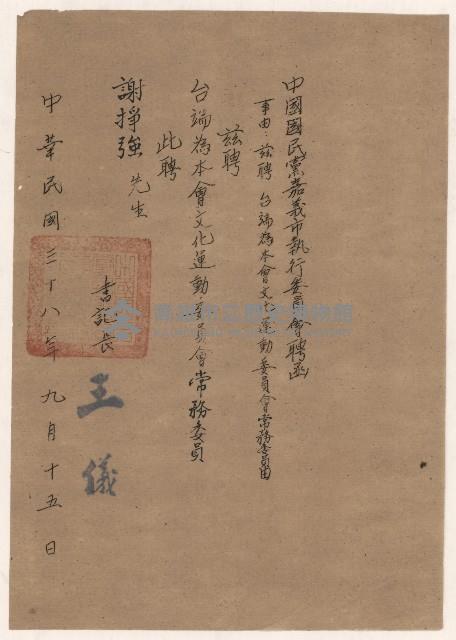 中國國民黨嘉義市執行委員會聘函
事由：茲聘 台端為本會文化運動委員會常務委員由
茲聘
台端為本會文化運動委員會常務委員
此聘
謝掙強 先生
書記長 王儀
中華民國三十八年九月十五日
高雄市立歷史博物館